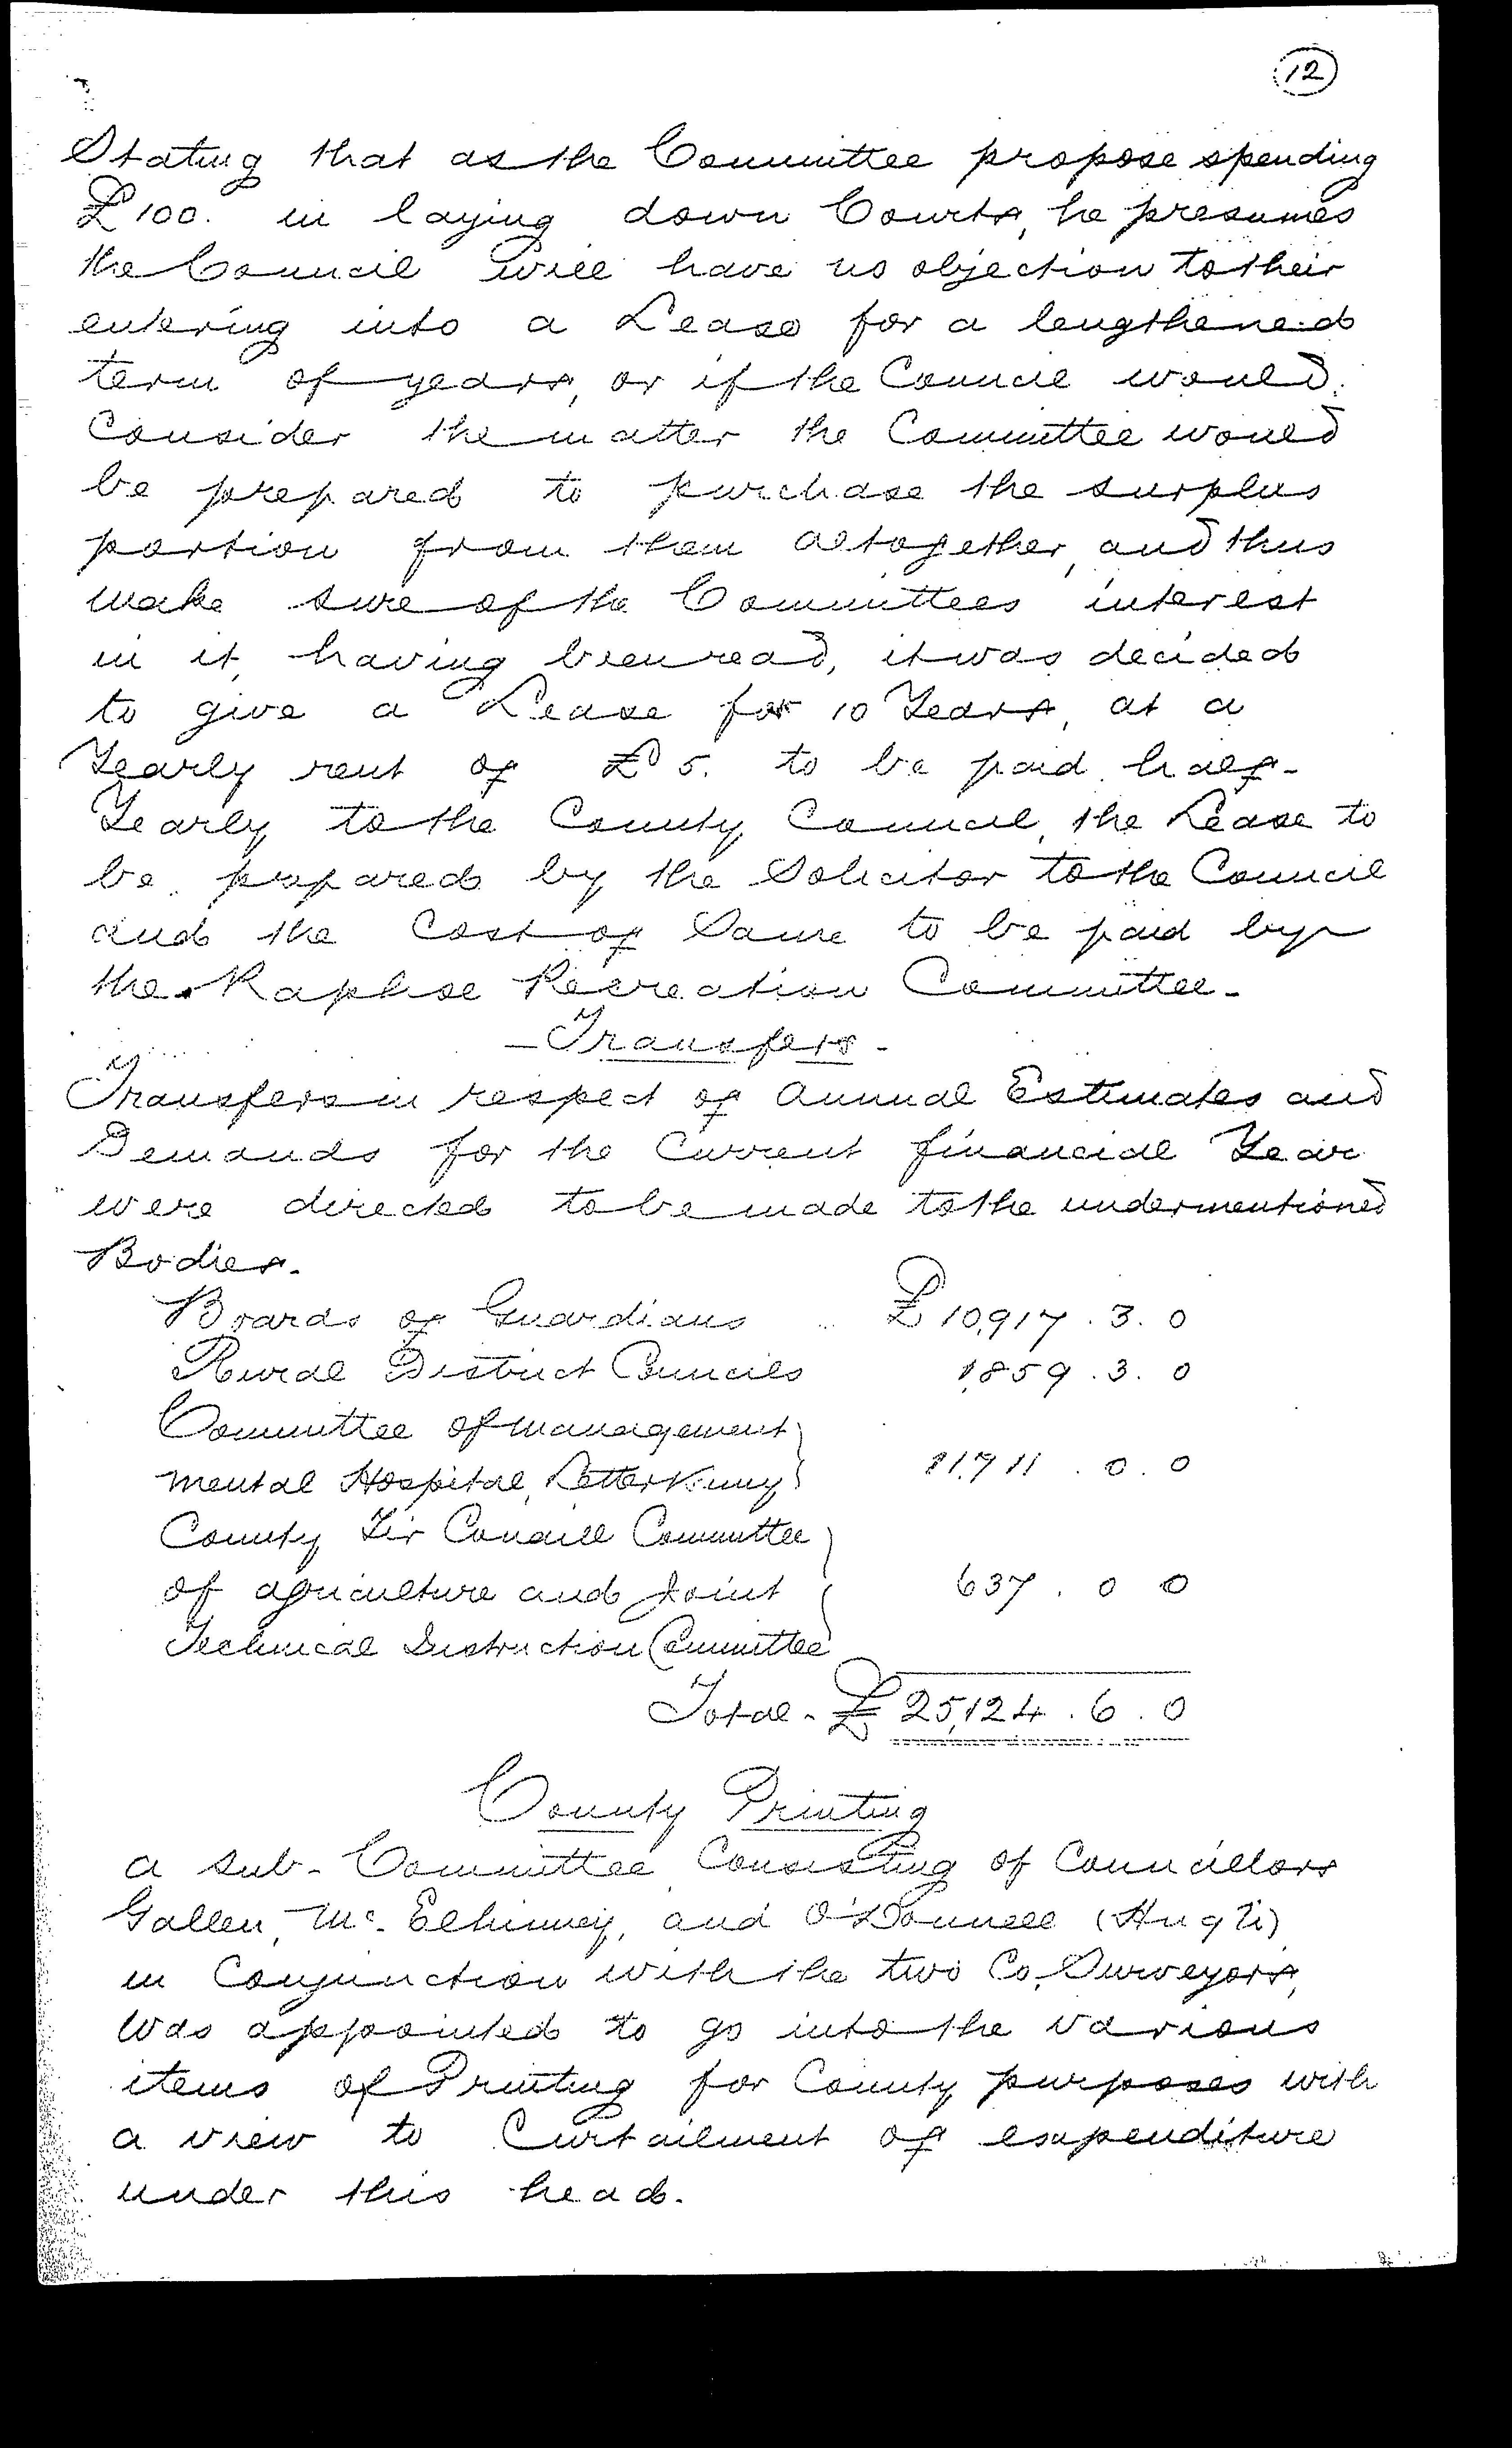 12
Stating that as the Committee propose spending
£100. in laying down Courts, he presumes
the Council will have no objection to their
entering into a Lease for a lengthened
term of years, or if the Council would
Consider the matter the Committee would
be prepared to purchase the surplus
portion from them altogether, and thus
make sure of the Committees interest
in it, having been read, it was decided
to give a Lease for 10 Years, at a
Yearly rent of £5. to be paid half-
Yearly to the County Council, the Lease to
be prepared by the Solicitor to the Council
and the Cost of Same to be paid by
the Raphoe Recreation Committee-
- Transfers -
Transfers in respect of Annual Estimates and
Demands for the Current financial Year
were directed to be made to the undermentioned
Bodies.
Boards of Guardians .. £10,917 . 3 . 0
Rural District Councils 1,859 . 3 . 0
Committee of management
mental Hospital, Letterkenny 11,711 . 0 . 0
County Tir Conaill Committee
of agriculture and Joint 637 . 0 0
Technical Instruction Committee
Total - £25,124 . 6 . 0
County Printing
a sub-Committee Consisting of Councillors
Gallen, Mc. Elhinney, and O'Donnell (Hugh)
in Conjunction with the two Co. Surveyors,
was appointed to go into the various
items of Printing for County purposes with
a view to Curtailment of expenditure
under this head.